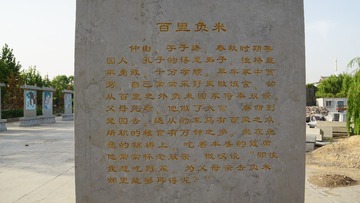 百里负米
仲由 字子路 春秋时期鲁
国人 孔子的得意弟子 性格直
率勇敢 十分孝顺 早年家中贫
穷 自己常常采野菜做饭食 却
从百里之外负米回家侍奉双亲
父母死后 他做了大官 奉命到
楚国去 随从的车马有百乘之众
所积的粮食有万钟之多 坐在垒
叠的锦褥上 吃着丰盛的筵席
他常常怀念双亲 慨叹说 即使
我想吃野菜 为父母亲去负米
哪里能够再得呢